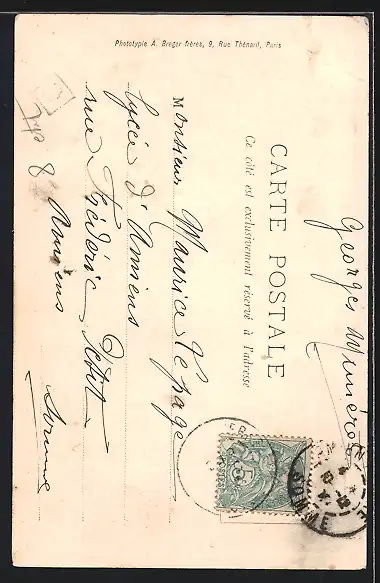 Phototypie A. Breger frères, 9, Rue Thénard, Paris
Georges
CARTE POSTALE
Ce côté est exclusivement réservé à l'adresse
Monsieur Maurice Lepage
Lycée d'Amiens
rue Frédéric Petit
8 Amiens
Somme